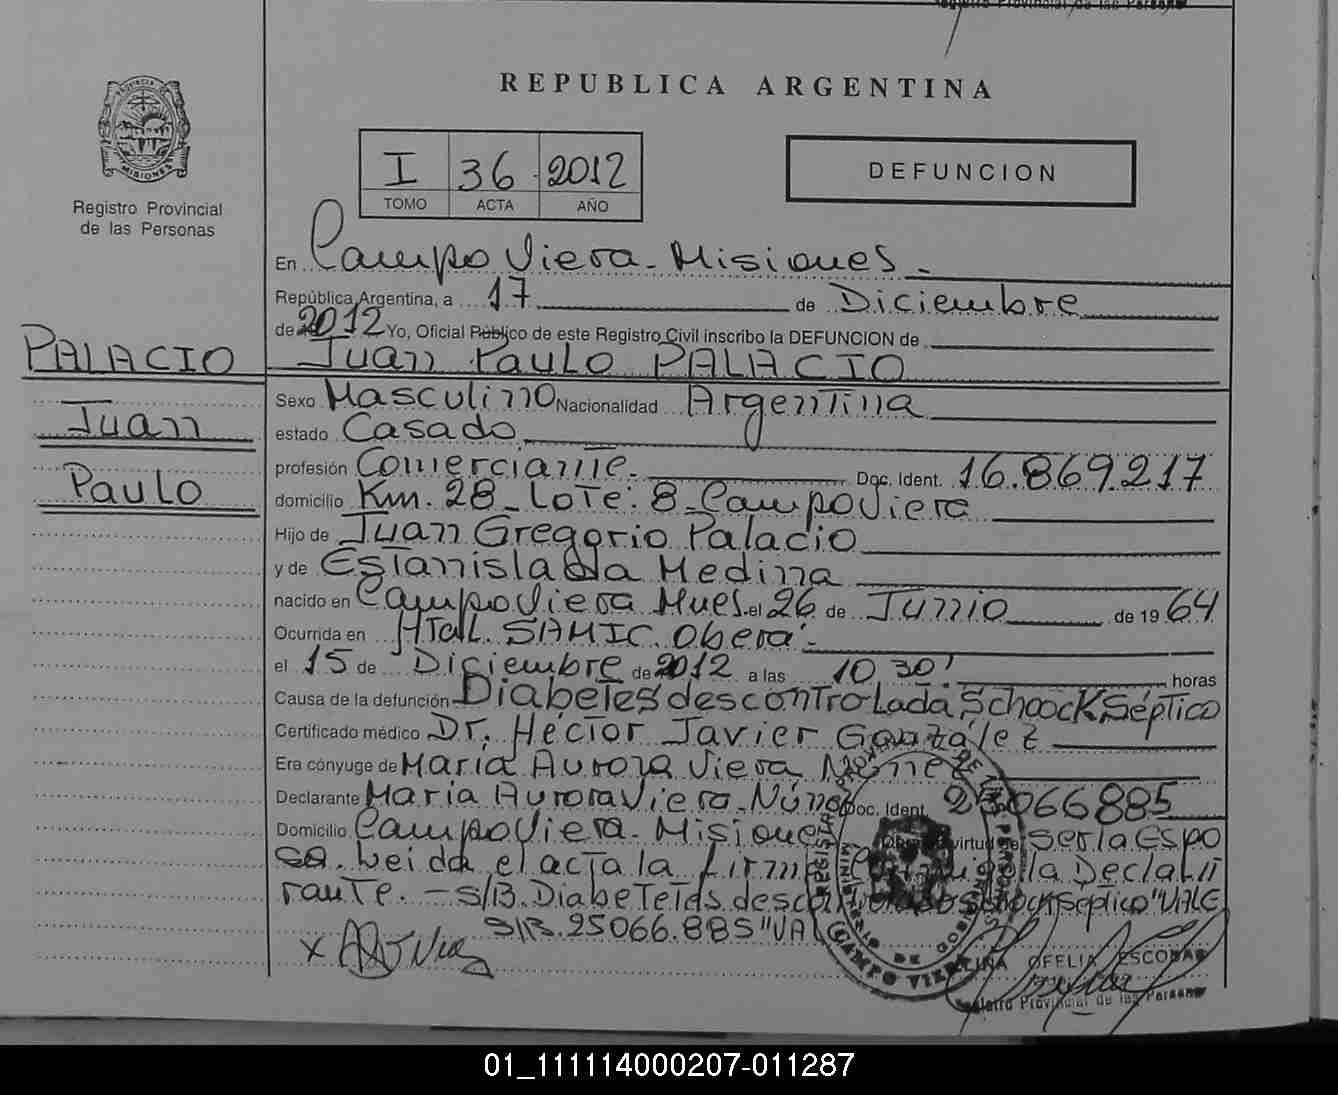 Registro Provincial de las Personas
REPUBLICA ARGENTINA
PROVINCIA DE
MISIONES
Registro Provincial
de las Personas
I 36 2012
TOMO ACTA AÑO
DEFUNCION
En Campo Viera - Misiones -
República Argentina, a 17 de Diciembre
de 2012 Yo, Oficial Público de este Registro Civil inscribo la DEFUNCION de
PALACIO
Juan
Paulo
Juan Paulo PALACIO
Sexo Masculino Nacionalidad Argentina
estado Casado
profesión Comerciante. Doc. Ident. 16.869.217
domicilio Km. 28 - Lote: 8 - Campo Viera
Hijo de Juan Gregorio Palacio
y de Estanislada Medina
nacido en Campo Viera Mnes. el 26 de Junio de 1964
Ocurrida en Htal. SAMIC. Oberá -
el 15 de Diciembre de 2012 a las 10 30' horas
Causa de la defunción Diabetes descontrolada, Schoock Séptico
Certificado médico Dr. Héctor Javier González
Era cónyuge de María Aurora Viera Núnez
Declarante María Aurora Viera - Núnez Doc. Ident. 25066885
Domicilio Campo Viera - Misiones virtud de ser la Espo
sa. Leida el acta la firma conmigo la Declara
rante. - S/B. Diabetes descontrolada schock séptico "VALE
S/B. 25066.885 "VA
X
CAMPO VIERA
LINA OFELIA ESCOBAR
Registro Provincial de las Personas
01_111114000207-011287